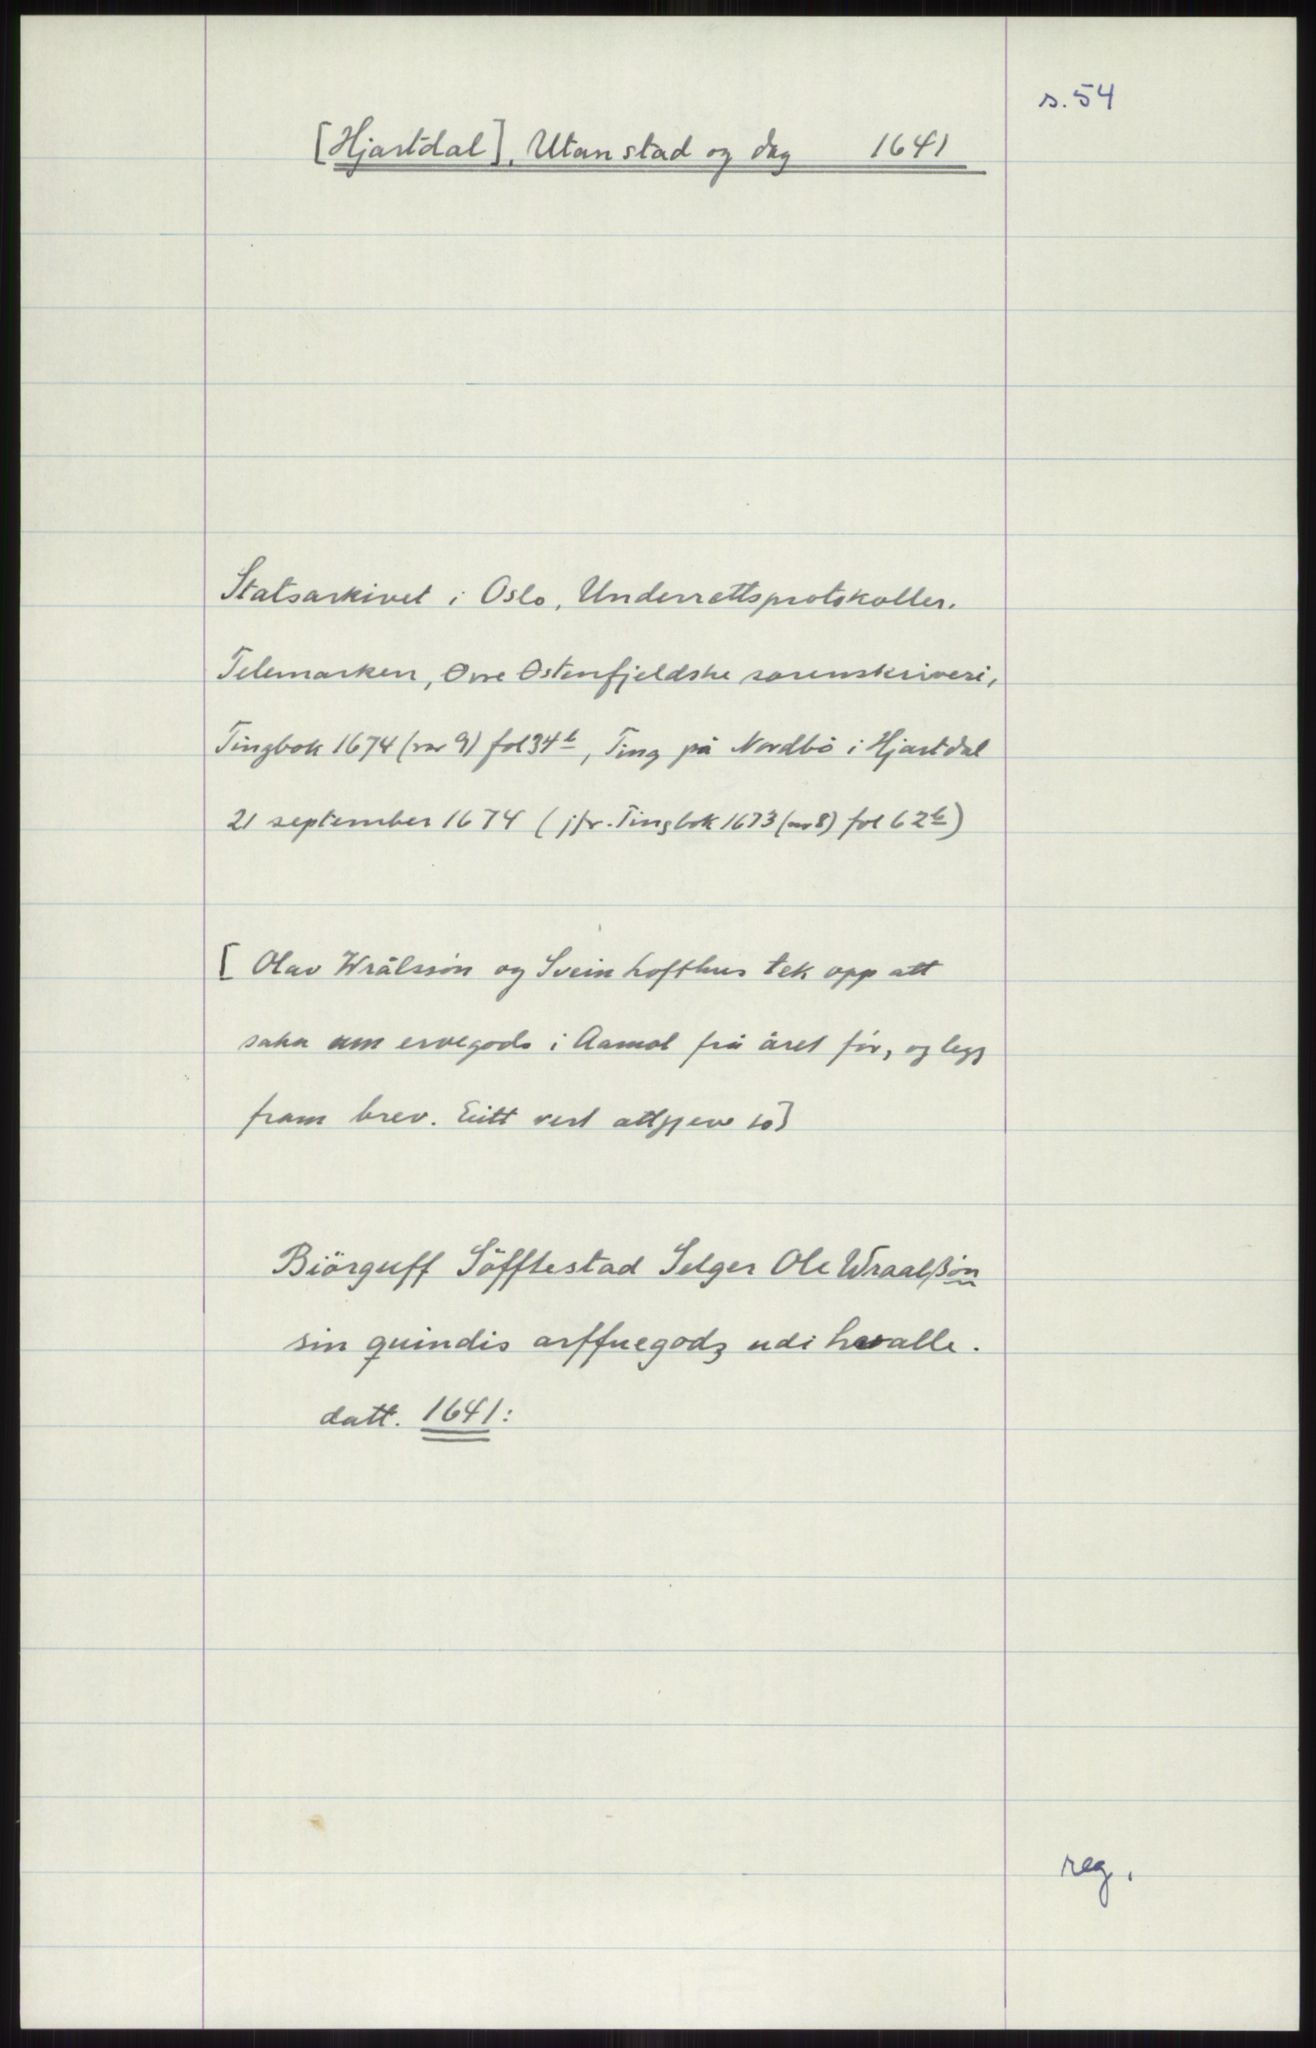 s. 54
[Hjartdal], Utan stad og dag 1641
Statsarkivet i Oslo, Underrettsprotokoller.
Telemarken, Øvre Østenfjeldske sorenskriveri,
Tingbok 1674 (nr 9) fol 34 b, Ting på Nordbö i Hjartdal
21 september 1674 (jfr. Tingbok 1673 (nr 8) fol 62 b)
[ Olav Wrålssön og Svein Lofthus tek opp att
saka um ervegods i Aamot frå året för, og legg
fram brev. Eitt vert attgjeve so]
Biörguff Söfftestad Selger Ole Wraalßön
sin quindis arffuegodz udi hvalle.
datt. 1641:
reg.